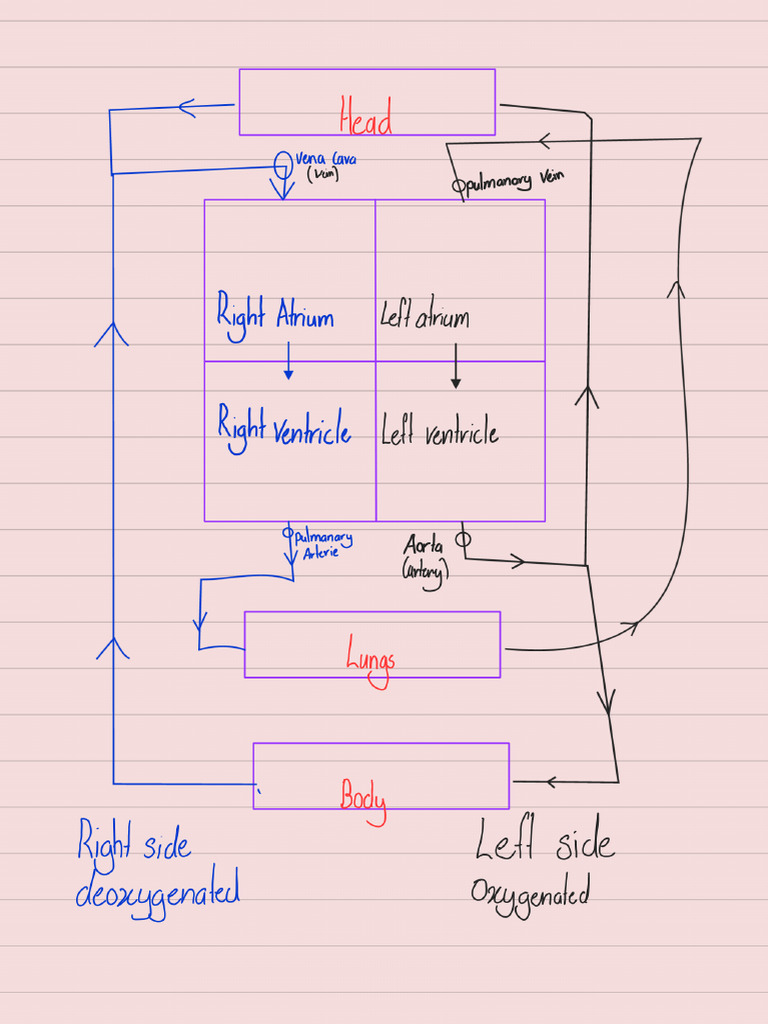 Head
Vena Cava
(Vein)
pulmanary vein
Right Atrium
Left atrium
Right ventricle
Left ventricle
pulmanary
Arterie
Aorta
(artary)
Lungs
Body
Right side
deoxygenated
Left side
Oxygenated